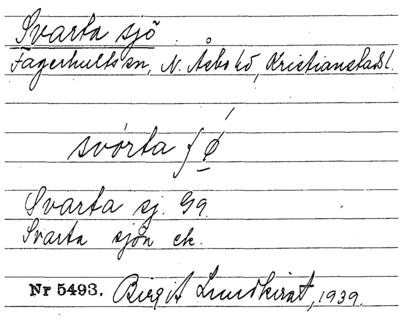 Svarta sjö
Fagerhults sn, N. Åsbo hd, Kristianstads l.
svórta
Svarta sj. Gg.
Svarta sjön ek.
Nr 5493. Birgit 1939.